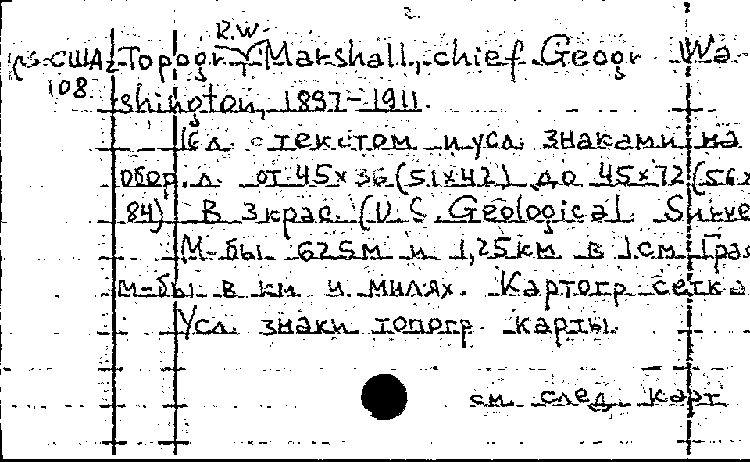 2.
R.W.
США Топогр. Marshall, chief Geogr Wa-
108
shington, 1897-1911.
16 л. с текстом и усл. знаками на
обор. л. от 45х36 (51х42) до 45х72 (56х
84) В 3 крас. (U.S. Geological Surve
М-бы 625м и 1,25км в 1см Граф
м-бы в км и милях. Картогр сетка
Усл. знаки топогр. карты.
см. след. карт